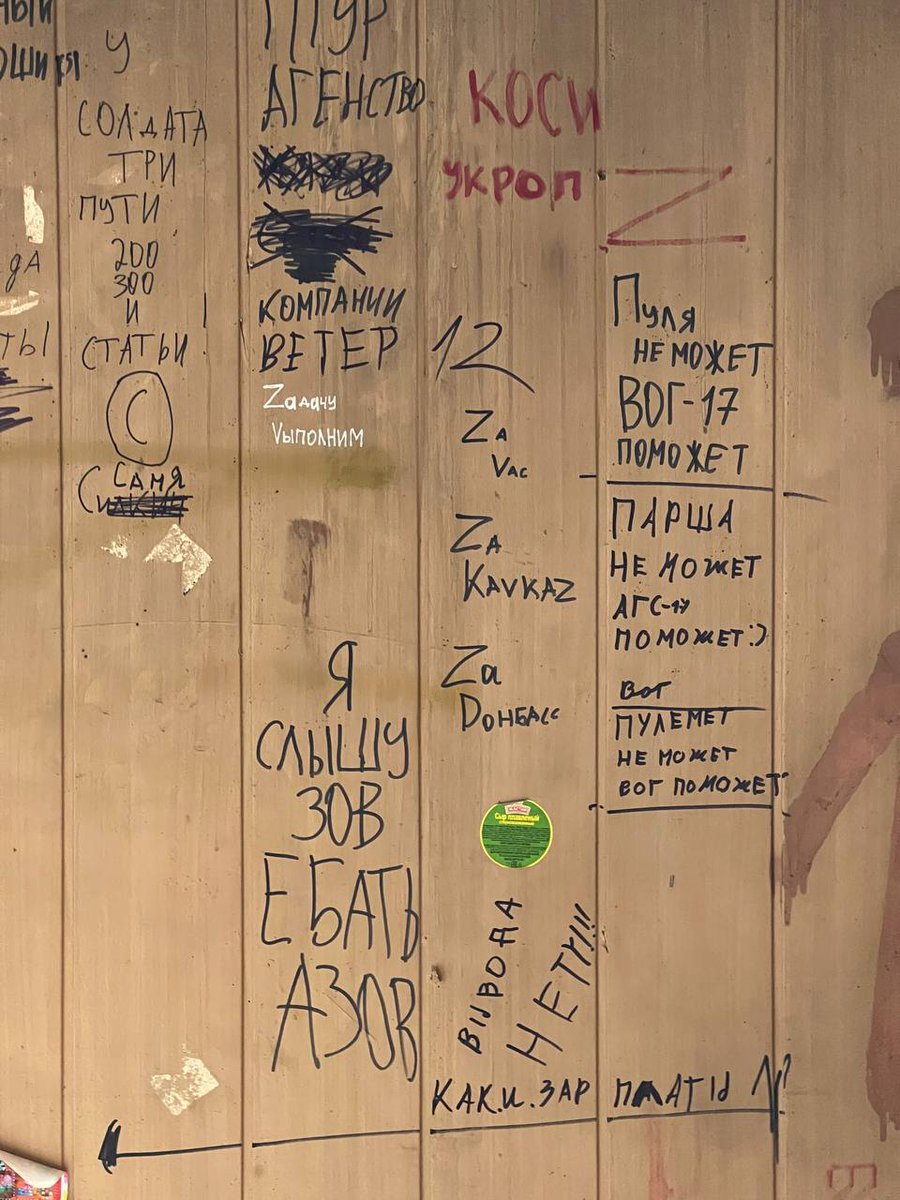 У
СОЛДАТА
ТРИ
ПУТИ
200
300
И
СТАТЬИ
С
САНЯ
ТУР
АГЕНСТВО
КОМПАНИИ
ВЕТЕР
Zадачу
Vыполним
Я
СЛЫШУ
ЗОВ
ЕБАТЬ
АЗОВ
КОСИ
УКРОП
Z
12
ZA
VAC
ZA
KAVKAZ
Za
DОНБАСС
Сыр плавленый
ВЫВОДА
НЕТУ!!!
КАК.И.ЗАР
ПЛАТЫ
Пуля
НЕ МОЖЕТ
ВОГ-17
ПОМОЖЕТ
ПАРША
НЕ МОЖЕТ
АГС-17
ПОМОЖЕТ:)
ВОГ
ПУЛЕМЕТ
НЕ МОЖЕТ
ВОГ ПОМОЖЕТ